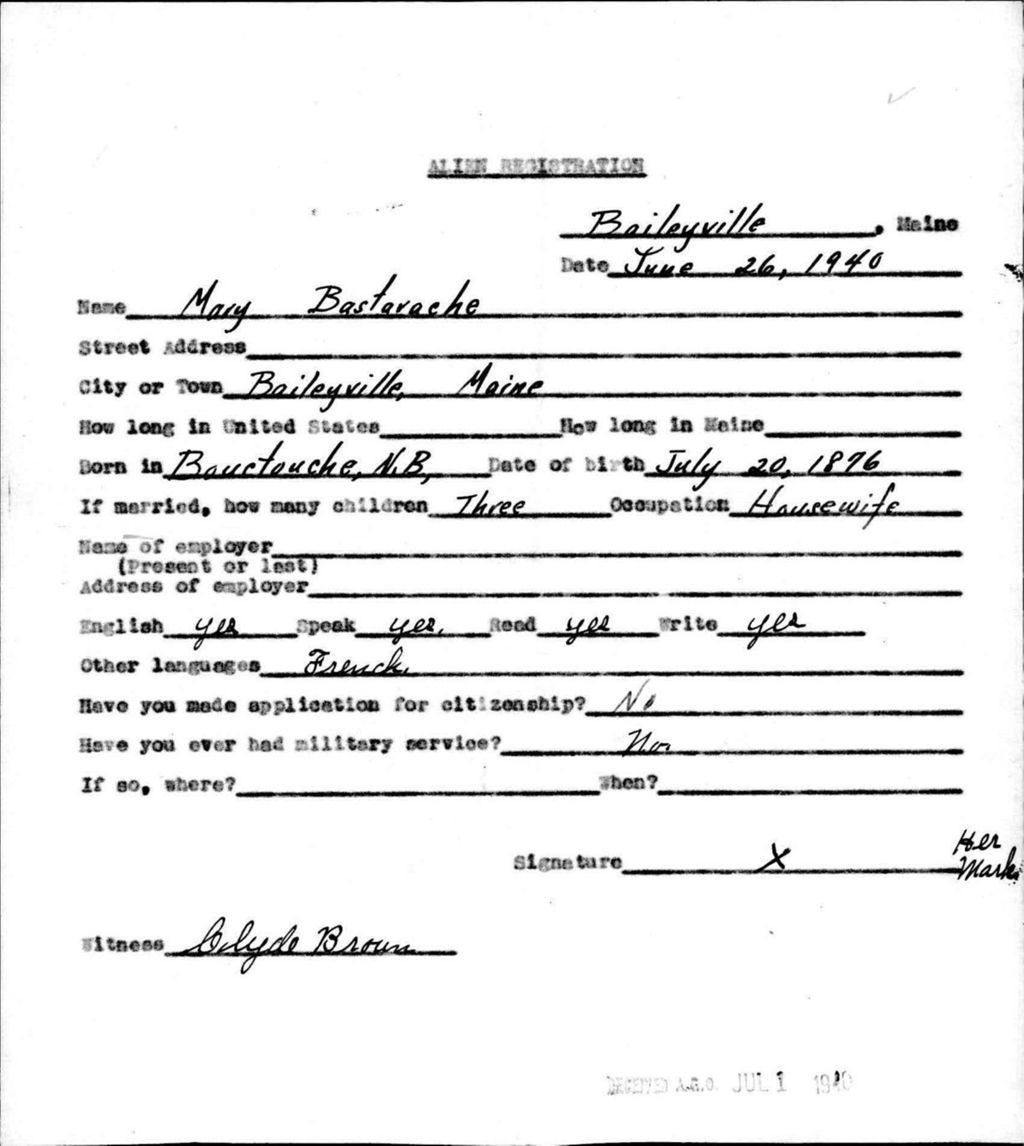 ALIEN REGISTRATION
Baileyville, Maine
Date June 26, 1940
Name Mary Bastarache
Street Address
City or Town Baileyville, Maine
How long in United States How long in Maine
Born in Bouctouche, N.B, Date of birth July 20, 1876
If married, how many children Three Occupation Housewife
Name of employer
(Present or last)
Address of employer
English yes Speak yes. Read yes Write yes
Other languages French.
Have you made application for citizenship? No
Have you ever had military service? No.
If so, where? When?
Her
Signature X Mark.
Witness Clyde Brown
RECEIVED A.G.O. JUL 1 1940